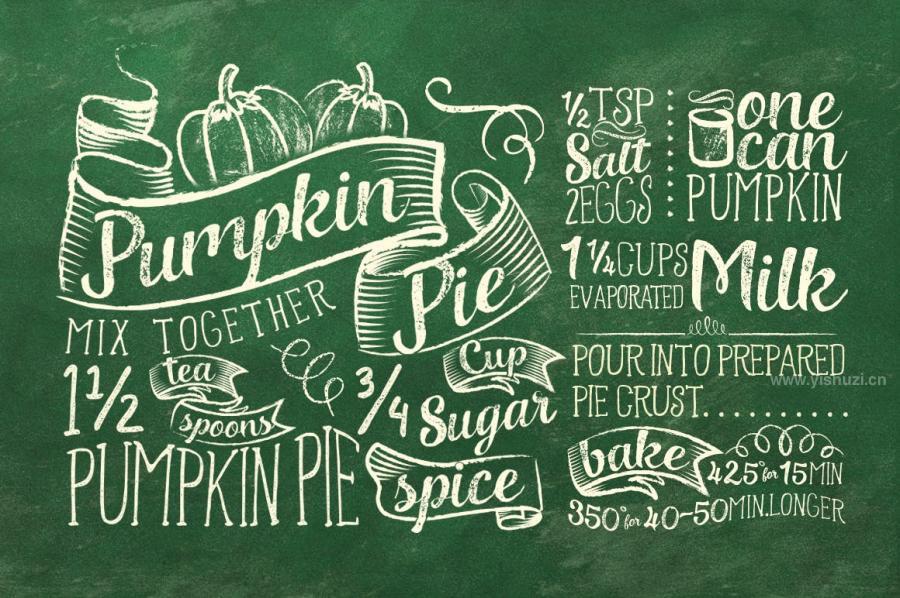 Pumpkin
Pie
MIX TOGETHER
1 1/2 tea spoons
PUMPKIN PIE spice
3/4 Cup Sugar
1/2 TSP
Salt
2 EGGS
one
can
PUMPKIN
1 1/4 CUPS
EVAPORATED Milk
POUR INTO PREPARED
www.yishuzi.cn
PIE CRUST..........
bake 425° for 15 MIN
350° for 40-50 MIN. LONGER